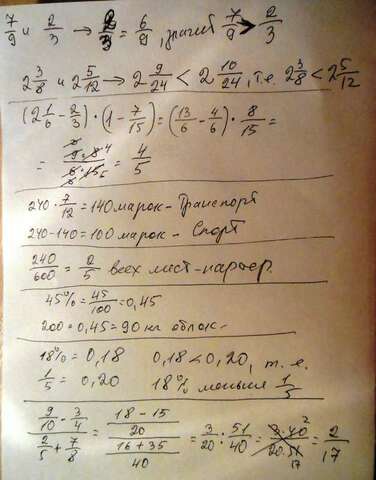 7/9 и 2/3 → 2/3 = 6/9, значит 7/9 > 2/3
2 3/8 и 2 5/12 → 2 9/24 < 2 10/24, т.е. 2 3/8 < 2 5/12
(2 1/6 - 2/3) · (1 - 7/15) = (13/6 - 4/6) · 8/15 =
= 9·8 4/6·15 5 = 4/5
240 · 7/12 = 140 марок - Транспорт
240-140 = 100 марок - Спорт
240/600 = 2/5 всех лист-карьер.
45% = 45/100 = 0,45
200 · 0,45 = 90 кг яблок
18% = 0,18 0,18 < 0,20, т.е.
1/5 = 0,20 18% меньше 1/5
(9/10 - 3/4)/(2/5 + 7/8) = ((18-15)/20)/((16+35)/40) = 3/20 : 51/40 = 3·40 2/20·51 17 = 2/17